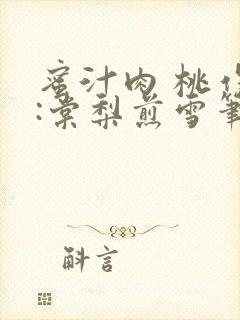 蜜汁肉桃
:棠梨煎雪
斛言